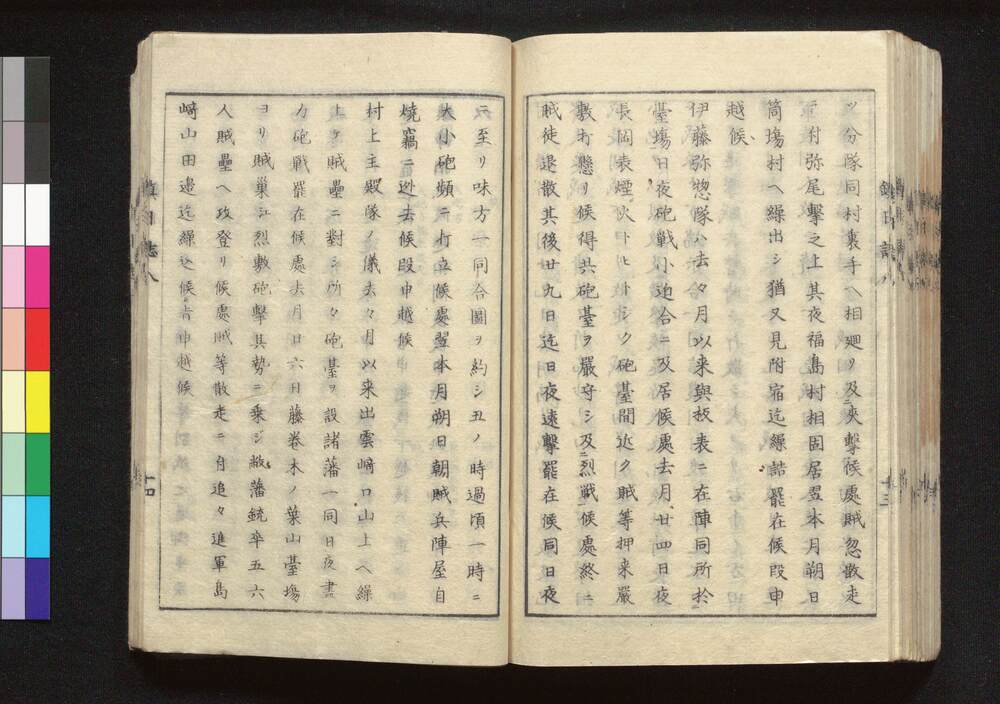 ツ分隊同村裏手ヘ相廻リ及夾撃候處賊忽散走
ニ付弥尾撃之上其夜福島村相固居翌本月朔日
筒塲村ヘ繰出シ猶又見附宿迄繰詰罷在候段申
越候
伊藤弥惣隊ハ去々月以来與板表ニ在陣同所於
臺塲日夜砲戦小迫合ニ及居候處去月廿四日夜
長岡表煙火ト
シク砲臺間近ク賊等押来嚴
敷打懸リ候得共砲臺ヲ嚴守シ及烈戦候處終ニ
賊徒退散其後廿九日迄日夜遠撃罷在候同日夜
ニ至リ味方一同合圖ヲ約シ丑ノ時過頃一時ニ
大小砲頻ニ打立候處翌本月朔日朝賊兵陣屋自
燒竊ニ逃去候段申越候
村上主殿隊ノ儀去々月以来出雲﨑口山上ヘ繰
上ケ賊壘ニ對シ所々砲臺ヲ設諸藩一同日夜盡
力砲戦罷在候處去月口六日藤巻木ノ葉山臺塲
ヨリ賊巣江烈敷砲撃其勢ニ乗シ敝藩銃卒五六
人賊壘ヘ攻登リ候處賊等散走ニ付追々進軍島
﨑山田邉迄繰込候旨申越候
鎮日誌八
十三
十四